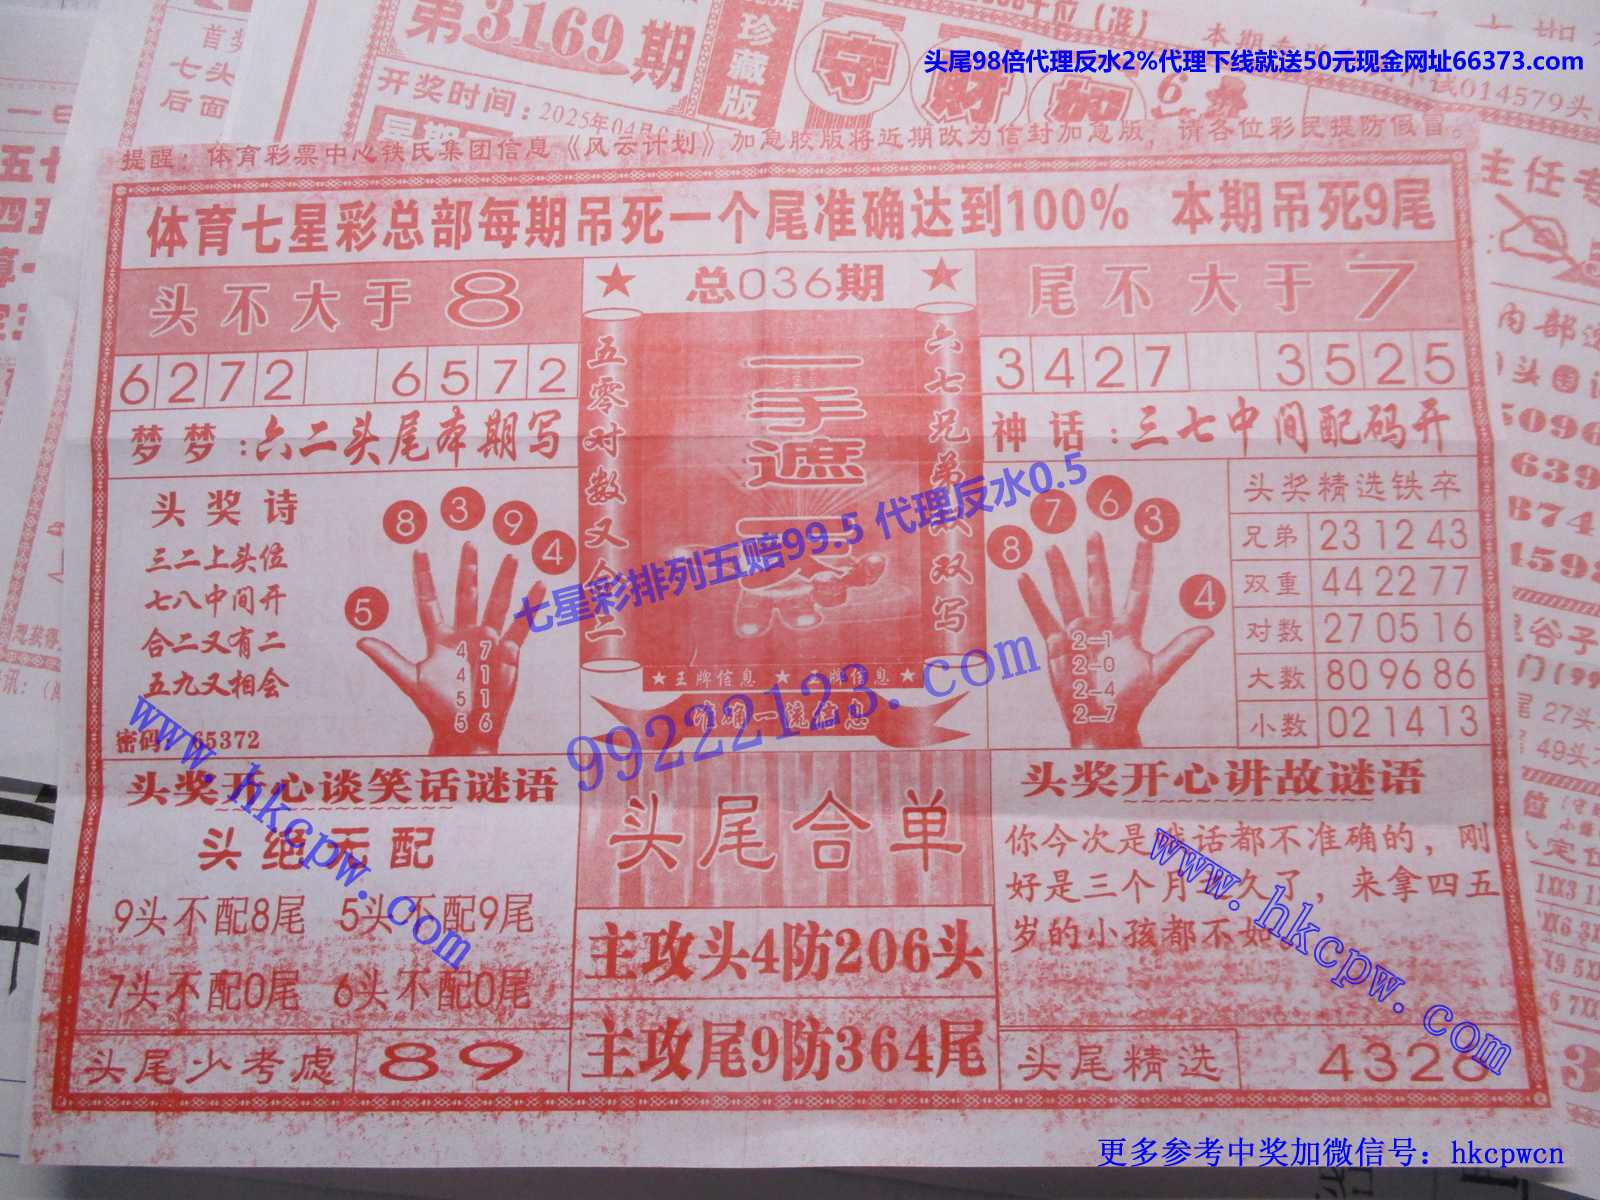 头尾98倍代理反水2%代理下线就送50元现金网址66373.com
第3169期
珍藏版
守
财
开奖时间：2025年04月
提醒：体育彩票中心铁氏集团信息《风云计划》加急胶版将近期改为信封加急版，请各位彩民提防假冒。
体育七星彩总部每期吊死一个尾准确达到100% 本期吊死9尾
头不大于8
6272 6572
梦梦：六二头尾本期写
头奖诗
三二上头位
七八中间开
合二又有二
五九又相会
密码：65372
5
8
3
9
4
4 7
4 1
5 1
5 6
★ 总036期 ★
五零对数又合二
一手遮天
六七兄弟
双写
★王牌信息 ★王牌信息★
准确一流信息
尾不大于7
3427 3525
神话：三七中间配码开
8
7
6
3
4
2-1
2-0
2-4
2-7
头奖精选铁卒
兄弟 23 12 43
双重 44 22 77
对数 27 05 16
大数 80 96 86
小数 02 14 13
头奖开心谈笑话谜语
头绝无配
9头不配8尾 5头不配9尾
7头不配0尾 6头不配0尾
头尾少考虑 89
头尾合单
主攻头4防206头
主攻尾9防364尾
头奖开心讲故谜语
你今次是戏话都不准确的，刚
好是三个月
久了，来拿四五
岁的小孩都不如
头尾精选 4326
七星彩排列五赔99.5 代理反水0.5
99222123.com
www.hkcpw.com
www.hkcpw.com
主任专
内部
头围
014579头
27头
49头
更多参考中奖加微信号：hkcpwcn